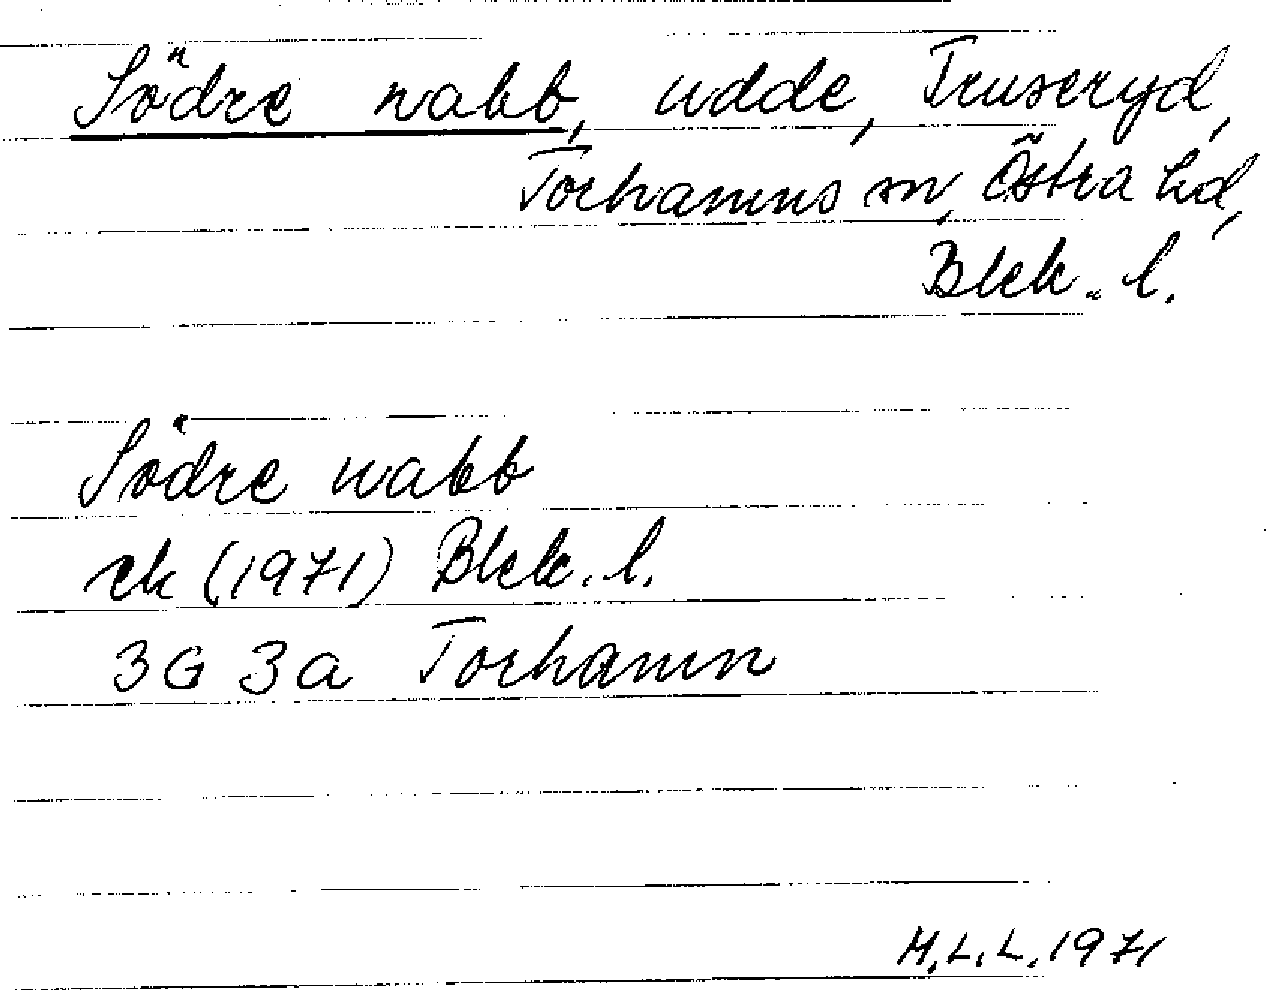 Södre nabb, udde, Truseryd,
Torhamns sn, Östra hd,
Blek. l.
Södre nabb
ek (1971) Blek. l.
3G 3a Torhamn
M.L.L. 1971